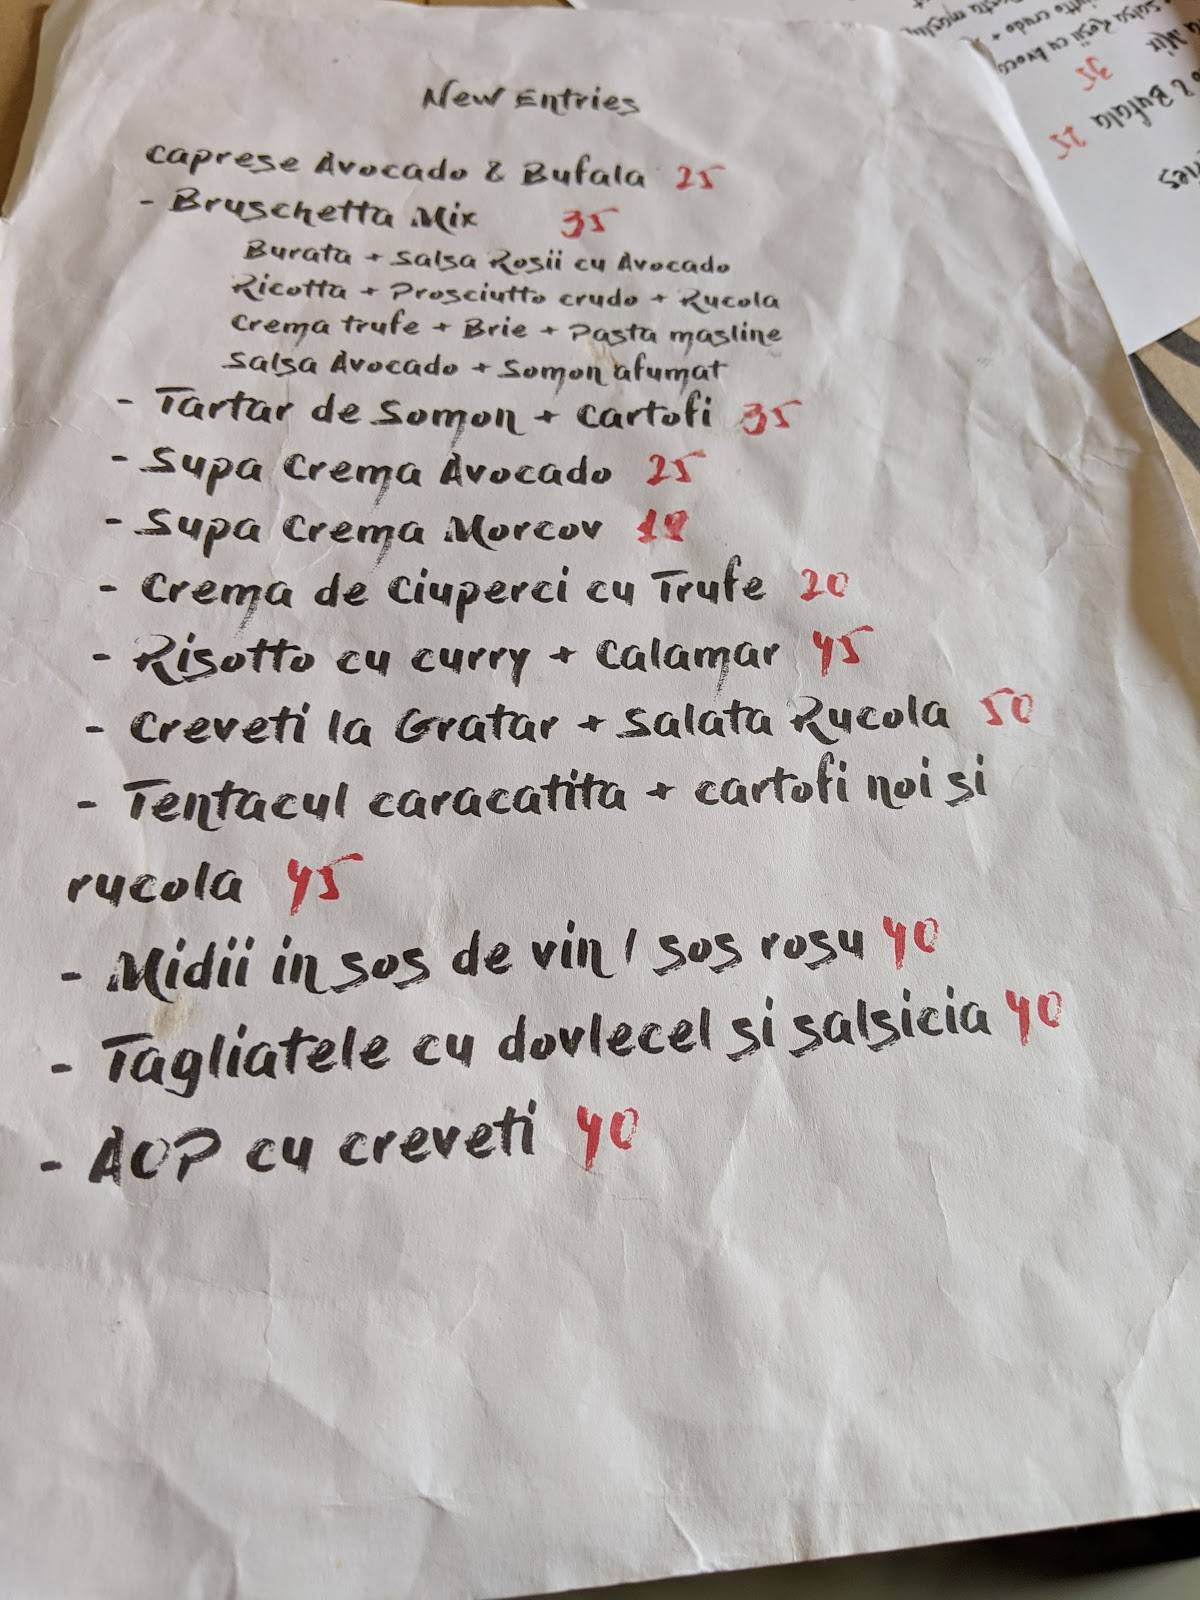 New Entries
caprese Avocado & Bufala 25
- Bruschetta Mix 35
Burata + Salsa Rosii cu Avocado
Ricotta + Prosciutto crudo + Rucola
Crema trufe + Brie + Pasta masline
Salsa Avocado + Somon afumat
- Tartar de Somon + Cartofi 35
- Supa Crema Avocado 25
- Supa Crema Morcov
- Crema de Ciuperci cu Trufe 20
- Risotto cu curry + Calamar 45
- Creveti la Gratar + Salata Rucola 50
- Tentacul caracatita + cartofi noi si
rucola 45
- Midii in sos de vin / sos rosu 40
- Tagliatele cu dovlecel si salsicia 40
- AOP cu creveti 40
35
& Bufala 25